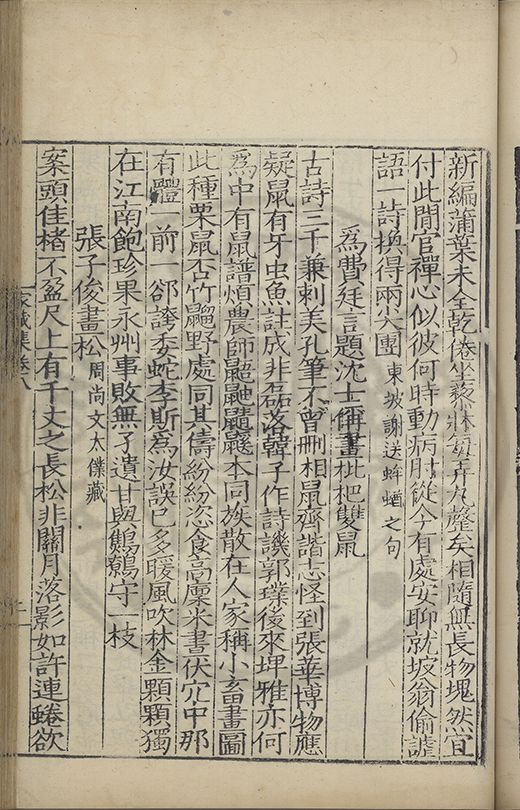 新編蒲葉未全乾倦坐藜牀氣弄丸蹩矣相隨無長物塊然宜
付此閒官禪心似彼何時動病肘從今有處安聊就坡翁偷謔
語一詩換得兩尖團東坡謝送蝤蛑之句
爲費廷言題沈士偁畫枇杷雙鼠
古詩三千兼刺美孔筆不曾刪相鼠齊諧志怪到張華博物應
疑鼠有牙虫魚註成非磊落韓子作詩譏郭璞後來埤雅亦何
爲中有鼠譜煩農師本同族散在人家稱小畜畫圖
此種栗鼠否竹䶉野處同其儔紛紛恣食高廩米晝伏穴中那
有體一前一郤誇委蛇李斯爲汝誤已多暖風吹林金顆顆獨
在江南飽珍果永州事敗無孑遺甘與鷦鷯守一枝
張子俊畫松周尚文太僕藏
案頭佳楮不盈尺上有千丈之長松非關月落影如許連蜷欲
家藏集卷八